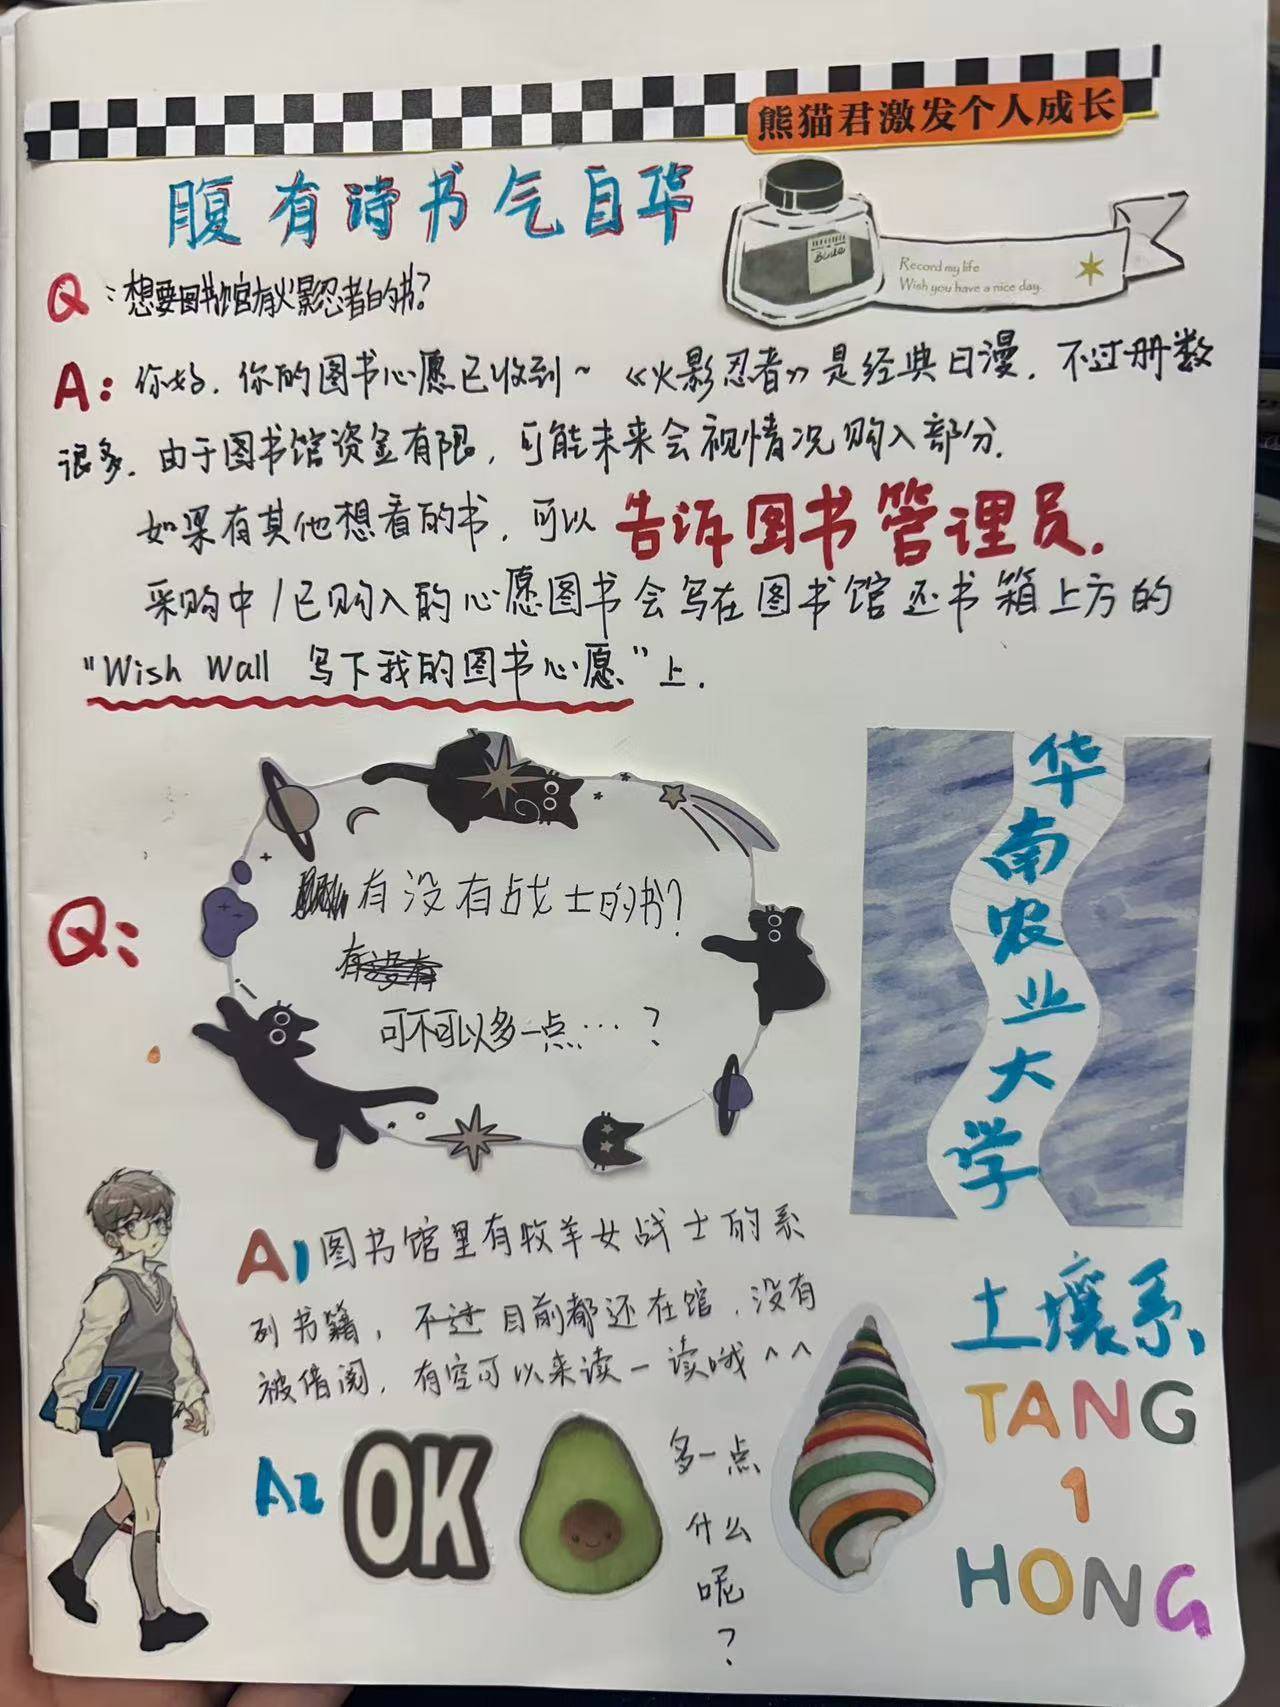 熊猫君激发个人成长
腹有诗书气自华
Record my life
Wish you have a nice day.
Q:想要图书馆有火影忍者的书?
A:你好,你的图书心愿已收到~《火影忍者》是经典日漫,不过册数
很多,由于图书馆资金有限,可能未来会视情况购入部分.
如果有其他想看的书,可以告诉图书管理员.
采购中/已购入的心愿图书会写在图书馆还书箱上方的
“Wish Wall 写下我的图书心愿”上.
Q:
有没有战士的书?
可不可以多一点…?
华南农业大学
A1图书馆里有牧羊女战士的系
列书籍,不过目前都还在馆,没有
被借阅,有空可以来读一读哦^^
A2 OK
多一点
什么
呢
?
土壤系
TANG
1
HONG